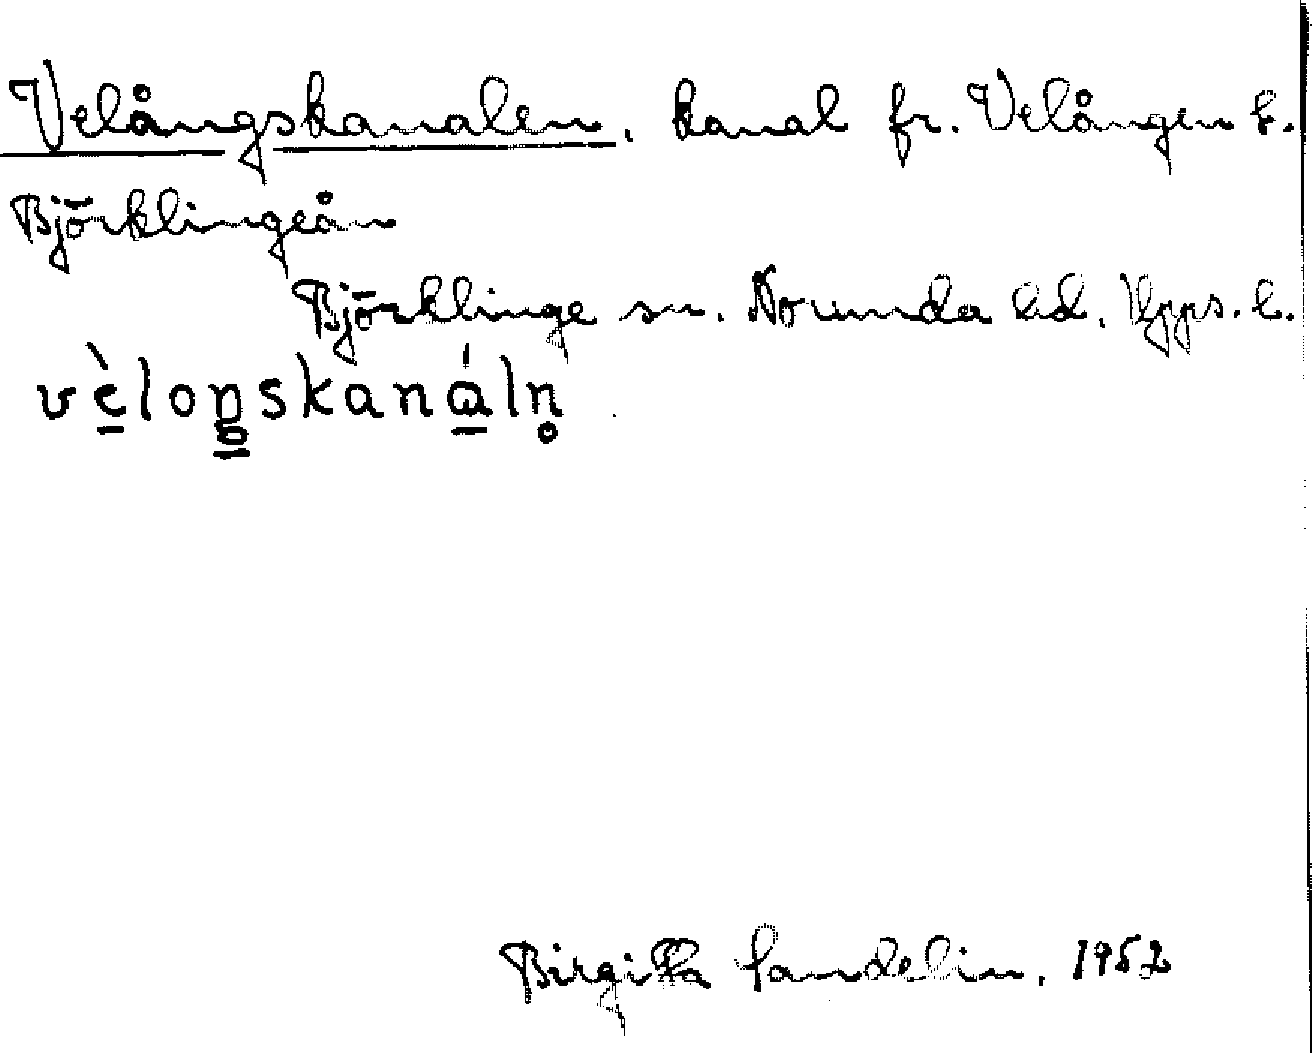 Velångskanalen, kanal fr. Velången t.
Björklingeån
Björklinge sn. Norunda hd. Upps. l.
vè̱loŋskaná̱ln̥
Birgitta Sandelin, 1952